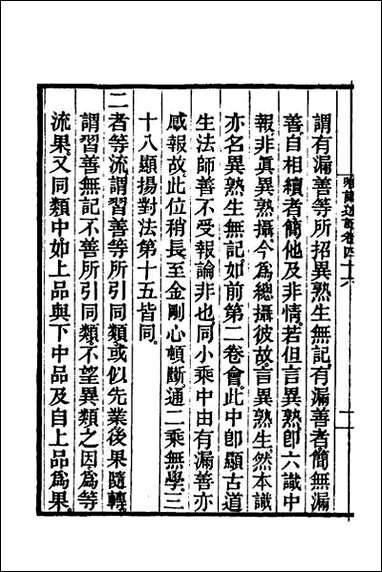 謂有漏善等所招異熟生無記有漏善者簡無漏
善自相續者簡他及非情若但言異熟卽六識中
報非眞異熟攝今爲總攝彼故言異熟生然本識
亦名異熟生無記如前第二卷會此中卽顯古道
生法師善不受報論非也同小乘中由有漏善亦
感報故此位稍長至金剛心頓斷通二乘無學三
十八顯揚對法第十五皆同
二者等流謂習善等所引同類或似先業後果隨轉
謂習善無記不善所引同類不望異類之因爲等
流果又同類中如上品與下中品及自上品爲果